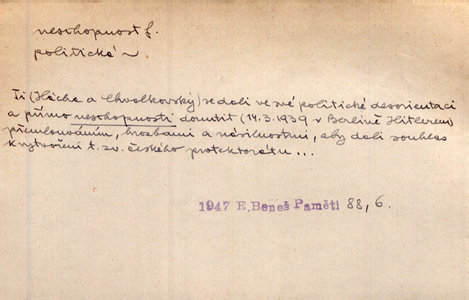 neschopnost f.
politická ~
Ti (Hácha a Chvalkovský) se dali ve své politické desorientaci
a přímo neschopnosti donutit (14.3.1939 v Berlíně Hitlerem)
přemlouváním, hrozbami a násilnostmi, aby dali souhlas
k vytvoření t. zv. českého protektorátu...
1947 E. Beneš Paměti 88, 6.